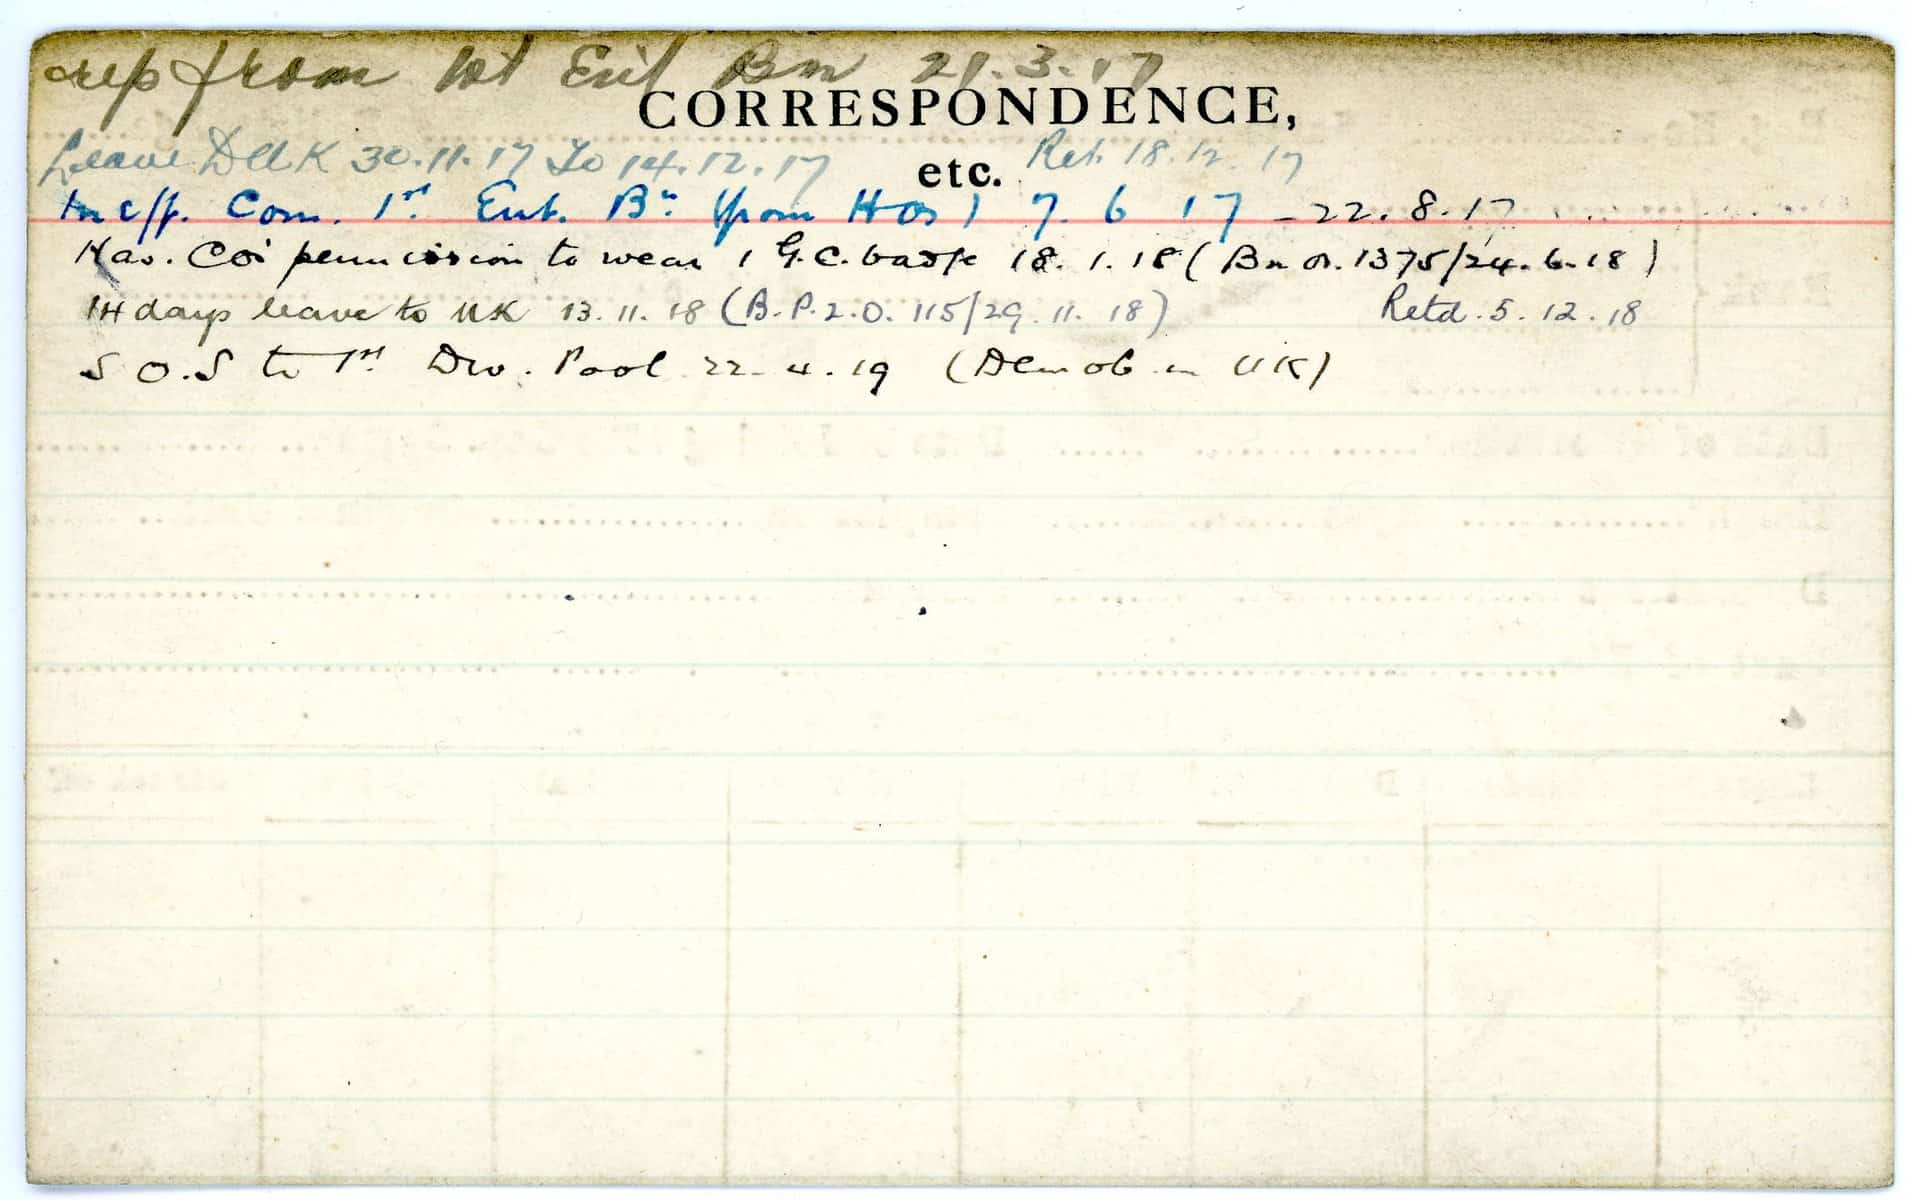 rep from 1st Ent Bn 21.3.17
CORRESPONDENCE,
Leave D UK 30.11.17 To 14.12.17 etc. Ret. 18.12.17
Ineff. Com. 1st Ent. Bn (from Hos) 7.6.17 - 22.8.17
Has. Co's permission to wear 1 G.C. badge 18.1.18 (Bn Or. 1375/24.6.18)
14 days leave to UK 13.11.18 (B.P.2.O. 115/29.11.18) Retd. 5.12.18
S.O.S to 1st Div. Pool 22.4.19 (Demob in UK)